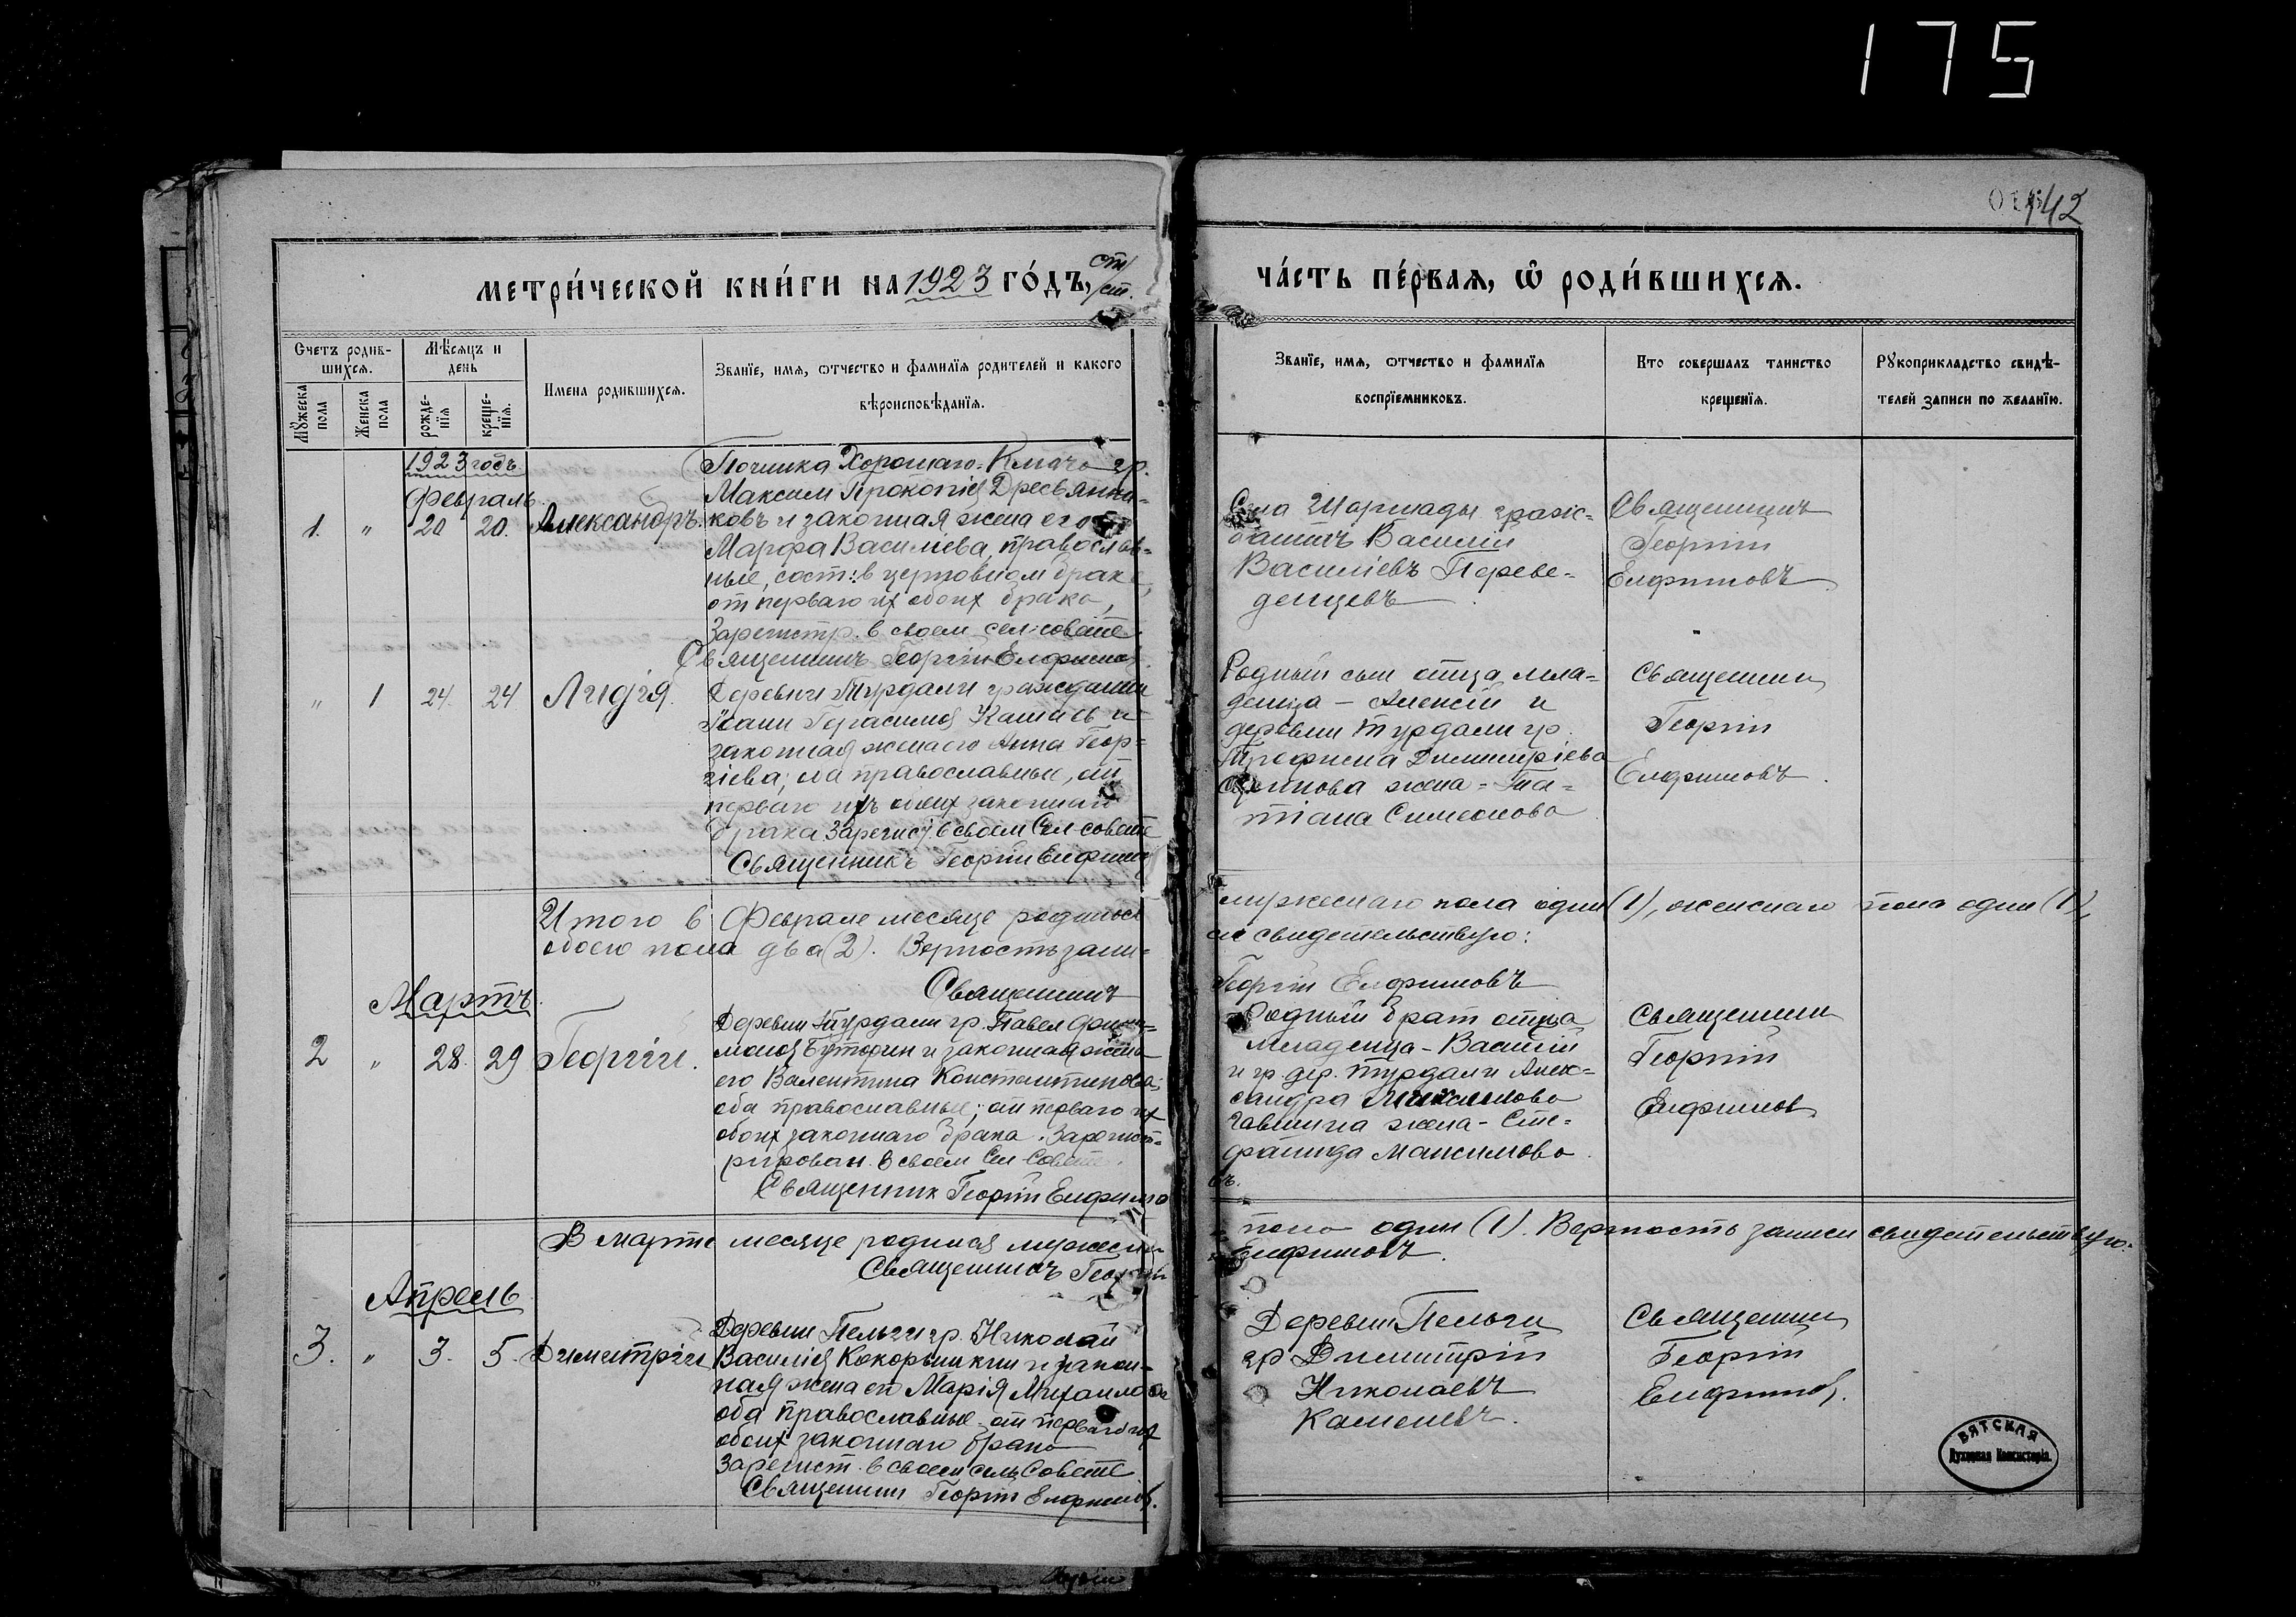 175
142
метри́ческой кни́ги на 1923 го́дъ, ст/ст.
ча́сть пе́рвая, ѡ҆ роди́вшихсѧ.
Счетъ родив-
шихсѧ.
Мѣсяцъ и
день
Мꙋжеска
пола
Женска
пола
рожде-
нїѧ
креще-
нїѧ.
Имена родившихсѧ.
Званїе, имѧ, ѡтчество и фамилїѧ родителей и какого
вѣроисповѣданїѧ.
Званїе, имѧ, ѡтчество и фамилїѧ
воспрїемниковъ.
Кто совершалъ таинство
крещенїѧ.
Рꙋкоприкладство свидѣ-
телей записи по желанїю.
1923 годъ
Февраль
1. " 20 20. Александръ.
Починка Хорошаго-Ключа гр.
Максим Прокопіев Дресвянни-
ковъ и законная жена его
Марфа Василіева, православ-
ные, сост: в церковном браке,
от перваго их обоих брака,
Зарегистр. в своем сел. совете
Священникъ Георгій Елфимов.
Села Шаршады граж-
данинъ Василій
Василіевъ Переве-
денцевъ
Священникъ
Георгій
Елфимовъ
" 1 24. 24 Лидія.
Деревни Турдали гражданин
Іоанн Герасимов Кашин и
законная жена его Анна Геор-
гіева; оба православные, от
перваго ихъ обоих законнаго
брака. Зарегист в своем Сел-совете
Священникъ Георгій Елфимов
Родный сын отца мла-
денца - Алексій и
деревни Турдали гр.
Трофима Димитріева
жена - Та-
тіана Симеонова
Священник
Георгій
Елфимовъ.
Итого в Феврале месяце родилось
мужескаго пола один (1), женскаго пола один (1),
обоего пола два (2). Верность запи-
си свидетельствую:
Священникъ
Георгій Елфимовъ
Мартъ.
2 " 28. 29 Георгій.
Деревни Турдали гр. Павел Фили-
монов Буторин и законная жена
его Валентина Константинова;
оба православные; от перваго их
обоих законнаго брака. Зарегист-
рирован. в своем Сел-Совете.
Священник Георгій Елфимо
въ.
Родный брат отца
младенца - Василій
и гр. дер. Турдали Алек-
сандра
жена - Сте-
фанида Максимова.
Священник
Георгій
Елфимов
В марте месяце родился мужеска
пола один (1). Верность записи свидетельствую:
Священникъ Георгій
Елфимовъ.
Апрель
3. " 3. 5. Димитрій
Деревни Пельги гр. Николай
Василіев Кокорышкин и закон-
ная жена его Марія Михаилова
оба православные - от перваго их
обоих законнаго брака
Зарегист. в своем сель Совете
Священник Георгій Елфимов.
Деревни Пельги
гр Димитрій
Николаевъ
Каменевъ.
Священник
Георгій
Елфимов.
ВЯТСКАЯ
Духовная Консисторія.